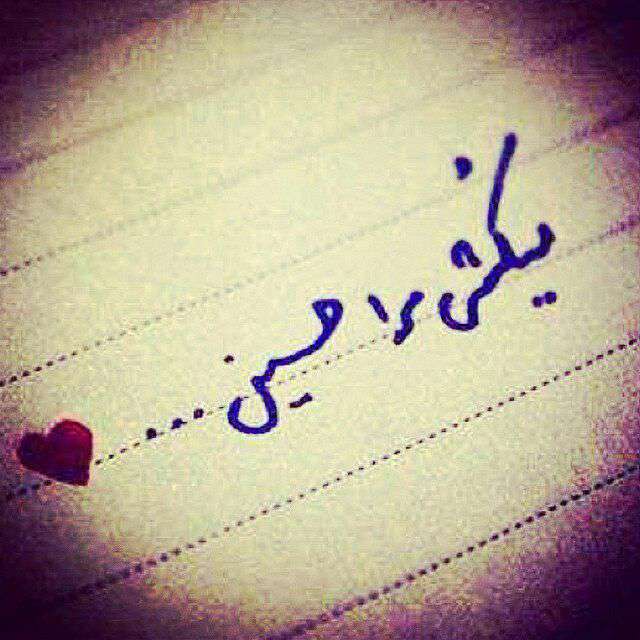 يكفي يا حسين ...